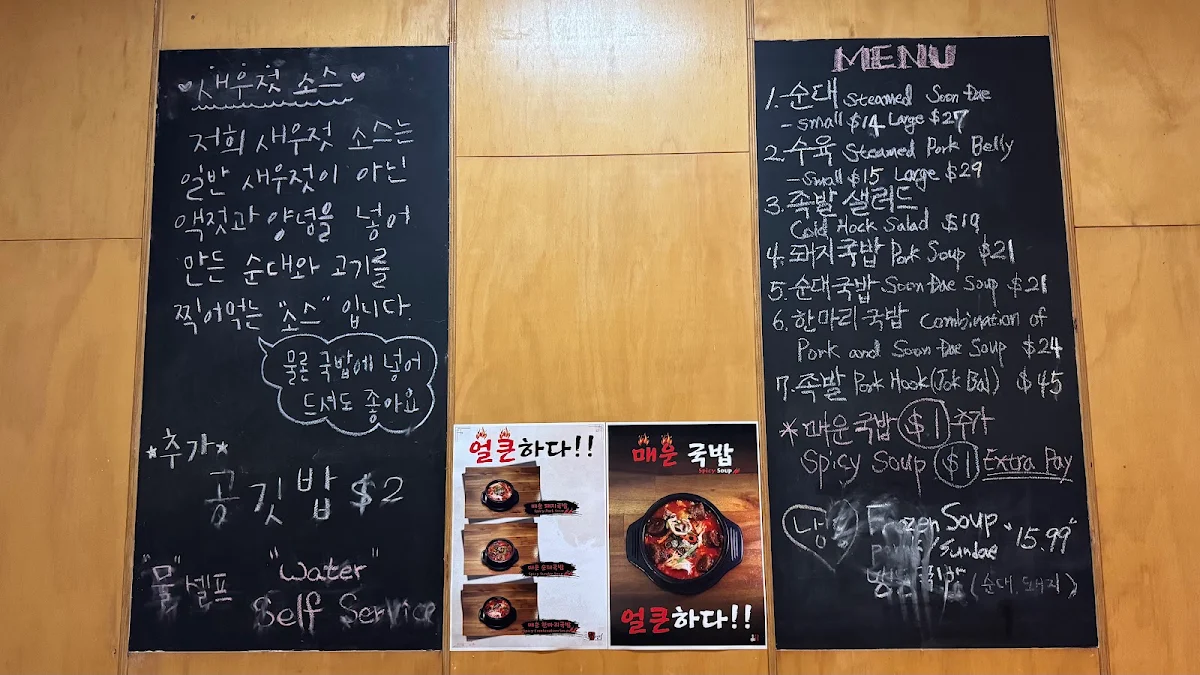 새우젓 소스
저희 새우젓 소스는
일반 새우젓이 아닌
액젓과 양념을 넣어
만든 순대와 고기를
찍어먹는 "소스" 입니다.
물론 국밥에 넣어
드셔도 좋아요
추가
공깃밥 $2
"물" 셀프
"Water"
Self Service
얼큰하다!!
매운 돼지국밥
매운 순대국밥
매운 한마리국밥
매운 국밥
Spicy Soup
얼큰하다!!
MENU
1. 순대 Steamed Soon Dae
- Small $14 Large $27
2. 수육 Steamed Pork Belly
- Small $15 Large $29
3. 족발 샐러드
Cold Hock Salad $19
4. 돼지국밥 Pork Soup $21
5. 순대국밥 Soon Dae Soup $21
6. 한마리국밥 Combination of
Pork and Soon Dae Soup $24
7. 족발 Pork Hook (Jok Bal) $45
* 매운국밥 $1 추가
Spicy Soup $1 Extra Pay
Frozen Soup
Pork / Sundae "15.99"
(순대. 돼지)